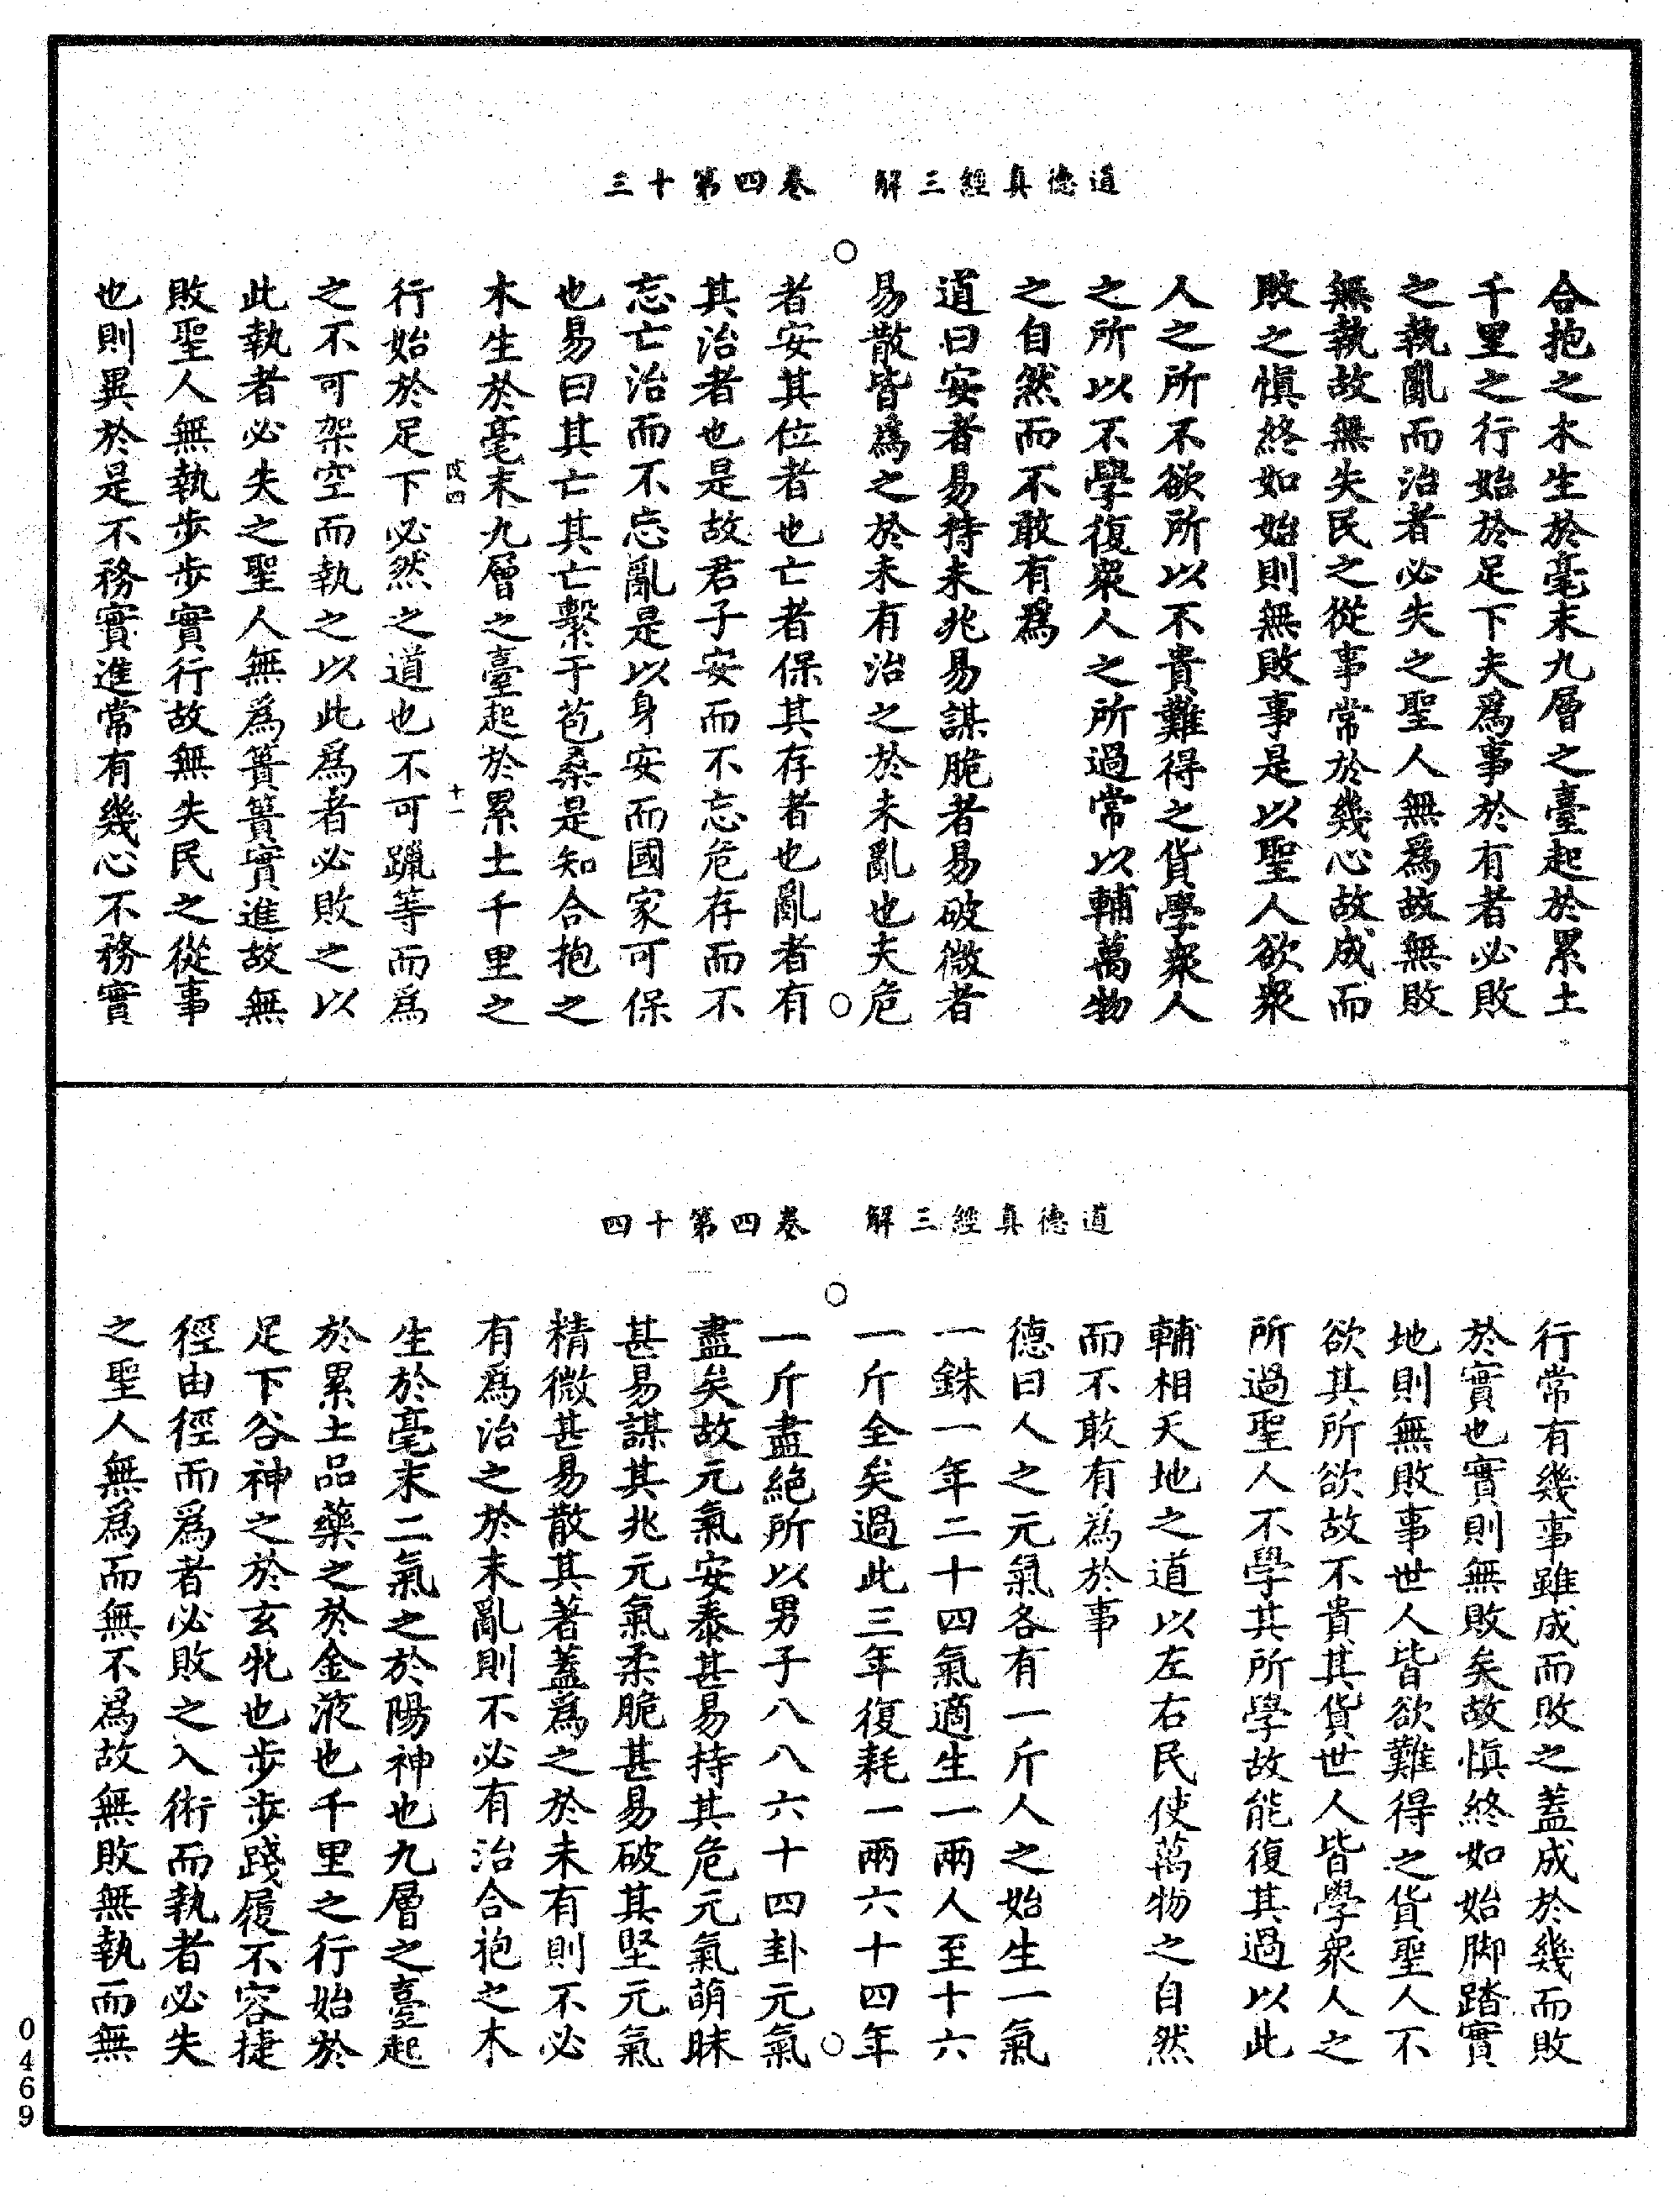 道德真經三解　卷四第十三
合抱之木生於毫末九層之臺起於累土
千里之行始於足下夫為事於有者必敗
之執亂而治者必失之聖人無為故無敗
無執故無失民之從事常於幾心故成而
敗之慎終如始則無敗事是以聖人欲眾
人之所不欲所以不貴難得之貨學眾人
之所以不學復眾人之所過常以輔萬物
之自然而不敢有為
道曰安者易待未兆易謀脆者易破微者
易散皆為之於未有治之於未亂也夫危
者安其位者也亡者保其存者也亂者有
其治者也是故君子安而不忘危存而不
忘亡治而不忘亂是以身安而國家可保
也易曰其亡其亡繫于苞桑是知合抱之
木生於毫末九層之臺起於累土千里之
十一
行始於足下必然之道也不可躐等而為
之不可架空而執之以此為者必敗之以
此執者必失之聖人無為簣簣實進故無
敗聖人無執步步實行故無失民之從事
也則異於是不務實進常有幾心不務實
道德真經三解　卷四第十四
行常有幾事雖成而敗之蓋成於幾而敗
於實也實則無敗矣故慎終如始脚踏實
地則無敗事世人皆欲難得之貨聖人不
欲其所欲故不貴其貨世人皆學眾人之
所過聖人不學其所學故能復其過以此
輔相天地之道以左右民使萬物之自然
而不敢有為於事
德曰人之元氣各有一斤人之始生一氣
一銖一年二十四氣適生一兩人至十六
一斤全矣過此三年復耗一兩六十四年
一斤盡絕所以男子八八六十四卦元氣
盡矣故元氣安泰甚易持其危元氣萌昧
甚易謀其兆元氣柔脆甚易破其堅元氣
精微甚易散其著蓋為之於未有則不必
有為治之於末亂則不必有治合抱之木
生於毫末二氣之於陽神也九層之臺起
於累土品藥之於金液也千里之行始於
足下谷神之於玄牝也步步踐履不容捷
徑由徑而為者必敗之入術而執者必失
之聖人無為而無不為故無敗無執而無
0469